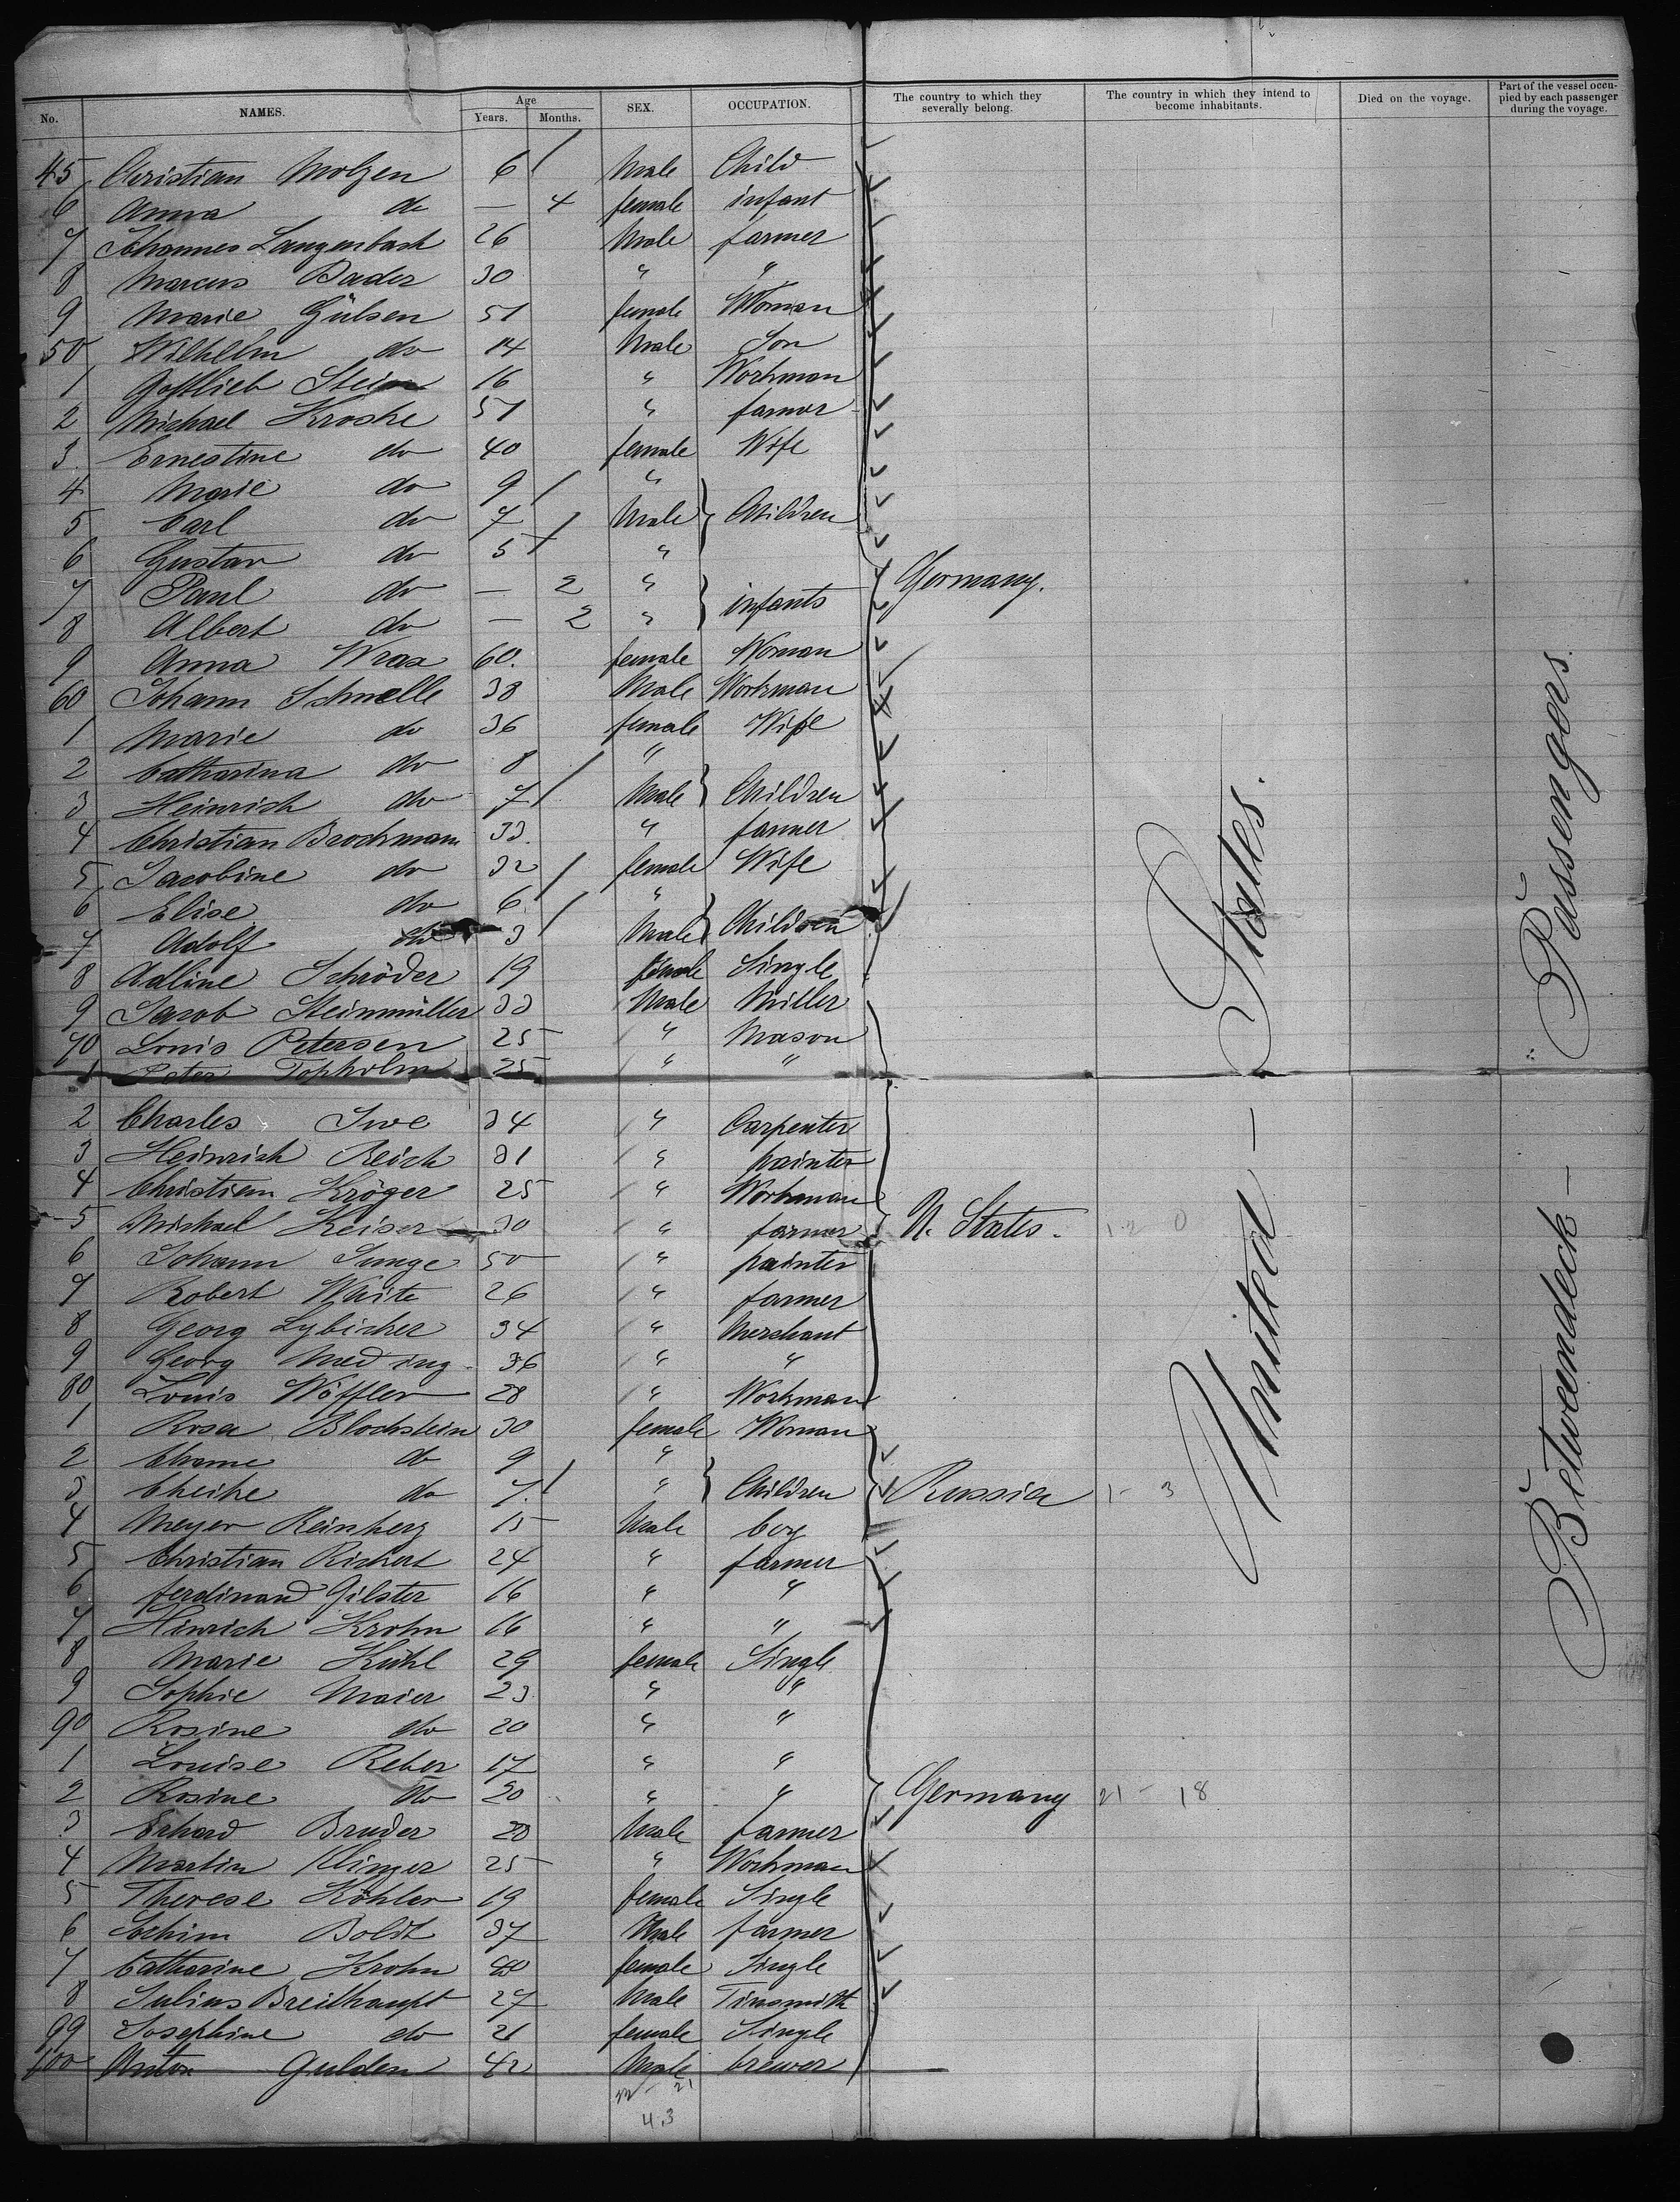 No. NAMES. Age Years. Months. SEX. OCCUPATION. The country to which they severally belong. The country in which they intend to become inhabitants. Died on the voyage. Part of the vessel occupied by each passenger during the voyage.
45 Christian Molzen 6 Male Child
6 Anna do — 4 female infant
7 Johannes Langenbach 26 Male farmer
8 Marcus Bader 30 " "
9 Marie Gülsen 51 female Woman
50 Wilhelm do 14 Male Son
1 Gottlieb Stein 16 " Workman
2 Michael Kroske 51 " farmer
3 Ernestine do 40 female Wife
4 Marie do 9 "
5 Carl do 7 Male Children
6 Gustav do 5 "
7 Paul do — 2 " Germany.
8 Albert do — 2 " infants
9 Anna Wrax 60. female Woman
60 Johann Schnelle 38 Male Workman
1 Marie do 36 female Wife
2 Catharina do 8 "
3 Heinrich do 7 Male Children
4 Christian Brockmann 33. " farmer
5 Jacobine do 32 female Wife
6 Elise do 6 "
7 Adolf do 3 Male Children
8 Adline Schröder 19 female Single
9 Jacob Steinmüller 33 Male Miller
70 Louis Petersen 25 " Mason
1 Peter Topholm 25 " "
2 Charles Iwe 34 " Carpenter
3 Heinrich Reick 31 " painter
4 Christian Kröger 25 " Workman
5 Michael Keiser 30 " farmer U. States. 12 0
6 Johann Junge 50 " painter
7 Robert Waite 26 " farmer
8 Georg Lybicher 34 " Merchant
9 Georg Meding 36 " "
80 Louis Wöffler 28 " Workman
1 Rosa Blochstein 30 female Woman
2 Chrome do 9 "
3 Cheike do 7. " Children Russia 1 - 3
4 Meyer Reinberg 15 Male boy
5 Christian Rickert 24 " farmer
6 ferdinand Gilster 16 " "
7 Hinrich Krohn 16 " "
8 Marie Kühl 29 female Single
9 Sophie Maier 23. " "
90 Rosine do 20 " "
1 Louise Reber 17 " "
2 Rosine do 20 " " Germany 21 - 18
3 Erhard Bruder 28 Male farmer
4 Martin Klinger 25 " Workman
5 Therese Köhler 19 female Single
6 Jochim Boldt 37 Male farmer
7 Catharine Krohn female Single
8 Julius Breithaupt 27 Male Tinsmith
99 Josephine do 21 female Single
100 Anton Gulden 42 Male brewer
22 - 21
43
United — States.
Betweendeck — Passengers.